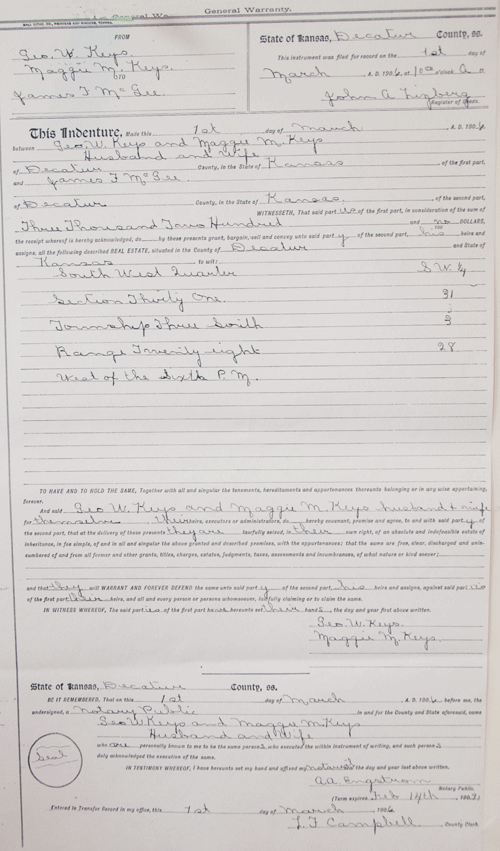 General Warranty.
FROM
Geo. W. Keys.
Maggie M. Keys.
TO
James F McGee
State of Kansas, Decatur County, ss.
This instrument was filed for record on the 1st day of
March A. D. 1906, at 10 o'clock A M
John A
Register of Deeds.
This Indenture, Made this 1st day of March, A. D. 190
between Geo. W. Keys and Maggie M. Keys
Husband and Wife
of Decatur County, in the State of Kansas of the first part,
and James F McGee
of Decatur County, in the State of Kansas. of the second part,
WITNESSETH, That said part ies of the first part, in consideration of the sum of
Three Thousand Two Hundred and no/100 DOLLARS,
the receipt whereof is hereby acknowledged, do by these presents grant, bargain, sell and convey unto said part y of the second part, his heirs and
assigns, all the following described REAL ESTATE, situated in the County of Decatur and State of
Kansas to wit:
South West Quarter S.W. 1/4
Section Thirty One. 31
Township Three South 3
Range Twenty eight 28
West of the Sixth P.M.
TO HAVE AND TO HOLD THE SAME, Together with all and singular the tenements, hereditaments and appurtenances thereunto belonging or in any wise appertaining,
forever.
And said Geo W. Keys and Maggie M. Keys husband & wife
for themselves their heirs, executors or administrators, do hereby covenant, promise and agree, to and with said part y of
the second part, that at the delivery of these presents they are lawfully seized in their own right, of an absolute and indefeasible estate of
inheritance, in fee simple, of and in all and singular the above granted and described premises, with the appurtenances; that the same are free, clear, discharged and unin-
cumbered of and from all former and other grants, titles, charges, estates, judgments, taxes, assessments and incumbrances, of what nature or kind soever;
and that they will WARRANT AND FOREVER DEFEND the same unto said part y of the second part, his heirs and assigns, against said part ies
of the first part, their heirs, and all and every person or persons whomsoever, lawfully claiming or to claim the same.
IN WITNESS WHEREOF, The said part ies of the first part have hereunto set their hands, the day and year first above written.
Geo. W. Keys.
Maggie M. Keys.
State of Kansas, Decatur County, ss.
BE IT REMEMBERED, That on this 1st day of March, A. D. 1906, before me, the
undersigned, a Notary Public in and for the County and State aforesaid, came
Geo W Keys and Maggie M. Keys
Husband and Wife
who are personally known to me to be the same persons, who executed the within instrument of writing, and such persons
duly acknowledged the execution of the same.
Seal
IN TESTIMONY WHEREOF, I have hereunto set my hand and affixed my notarial the day and year last above written.
A.A. Engstrom
Notary Public.
(Term expires Feb 14th 190
Entered in Transfer Record in my office, this 1st day of March 1906
L. T. Campbell, County Clerk